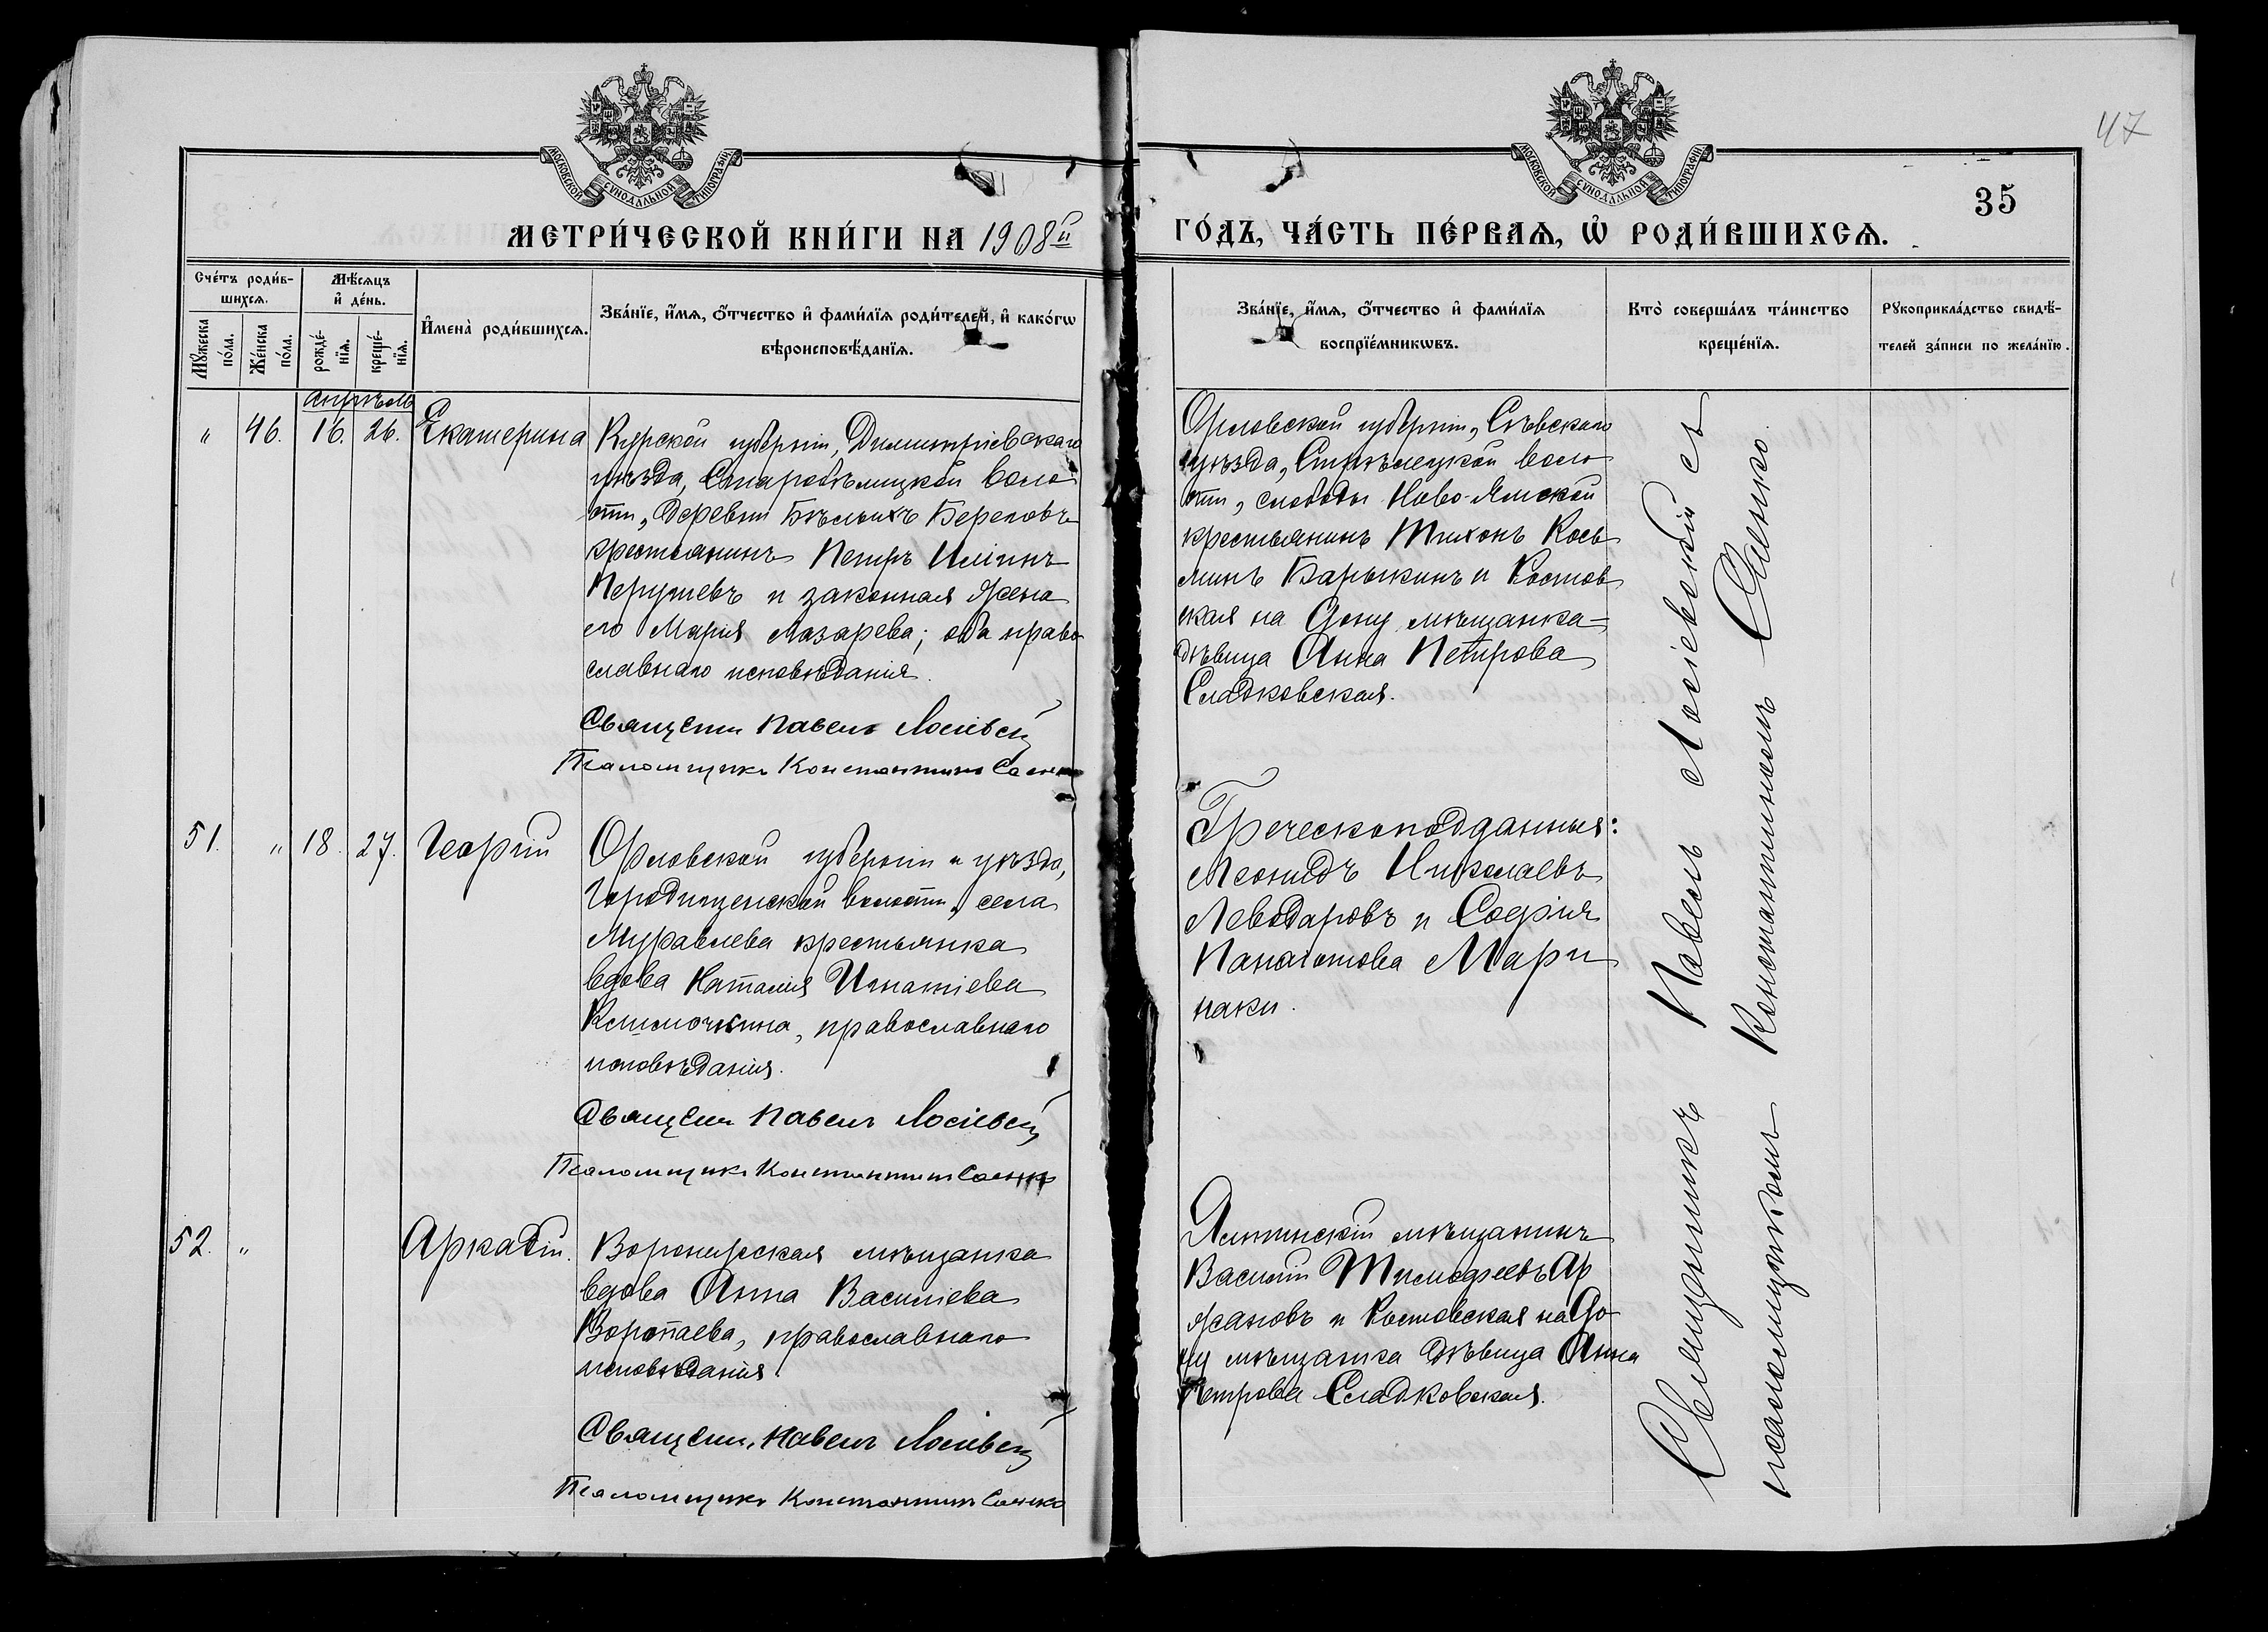 47
МОСКОВСКОЙ СУНОДАЛЬНОЙ ТИПОГРАФІИ
МОСКОВСКОЙ СУНОДАЛЬНОЙ ТИПОГРАФІИ
35
МЕТРИ́ЧЕСКОЙ КНИ́ГИ НА 1908й
ГО́ДЪ, ЧА́СТЬ ПЕ́РВАѦ, Ѡ҆ РОДИ́ВШИХСѦ.
Сче́тъ роди́в-
шихсѧ.
Мѣ́сѧцъ
и҆ де́нь.
Мꙋ́жеска
по́ла.
Же́нска
по́ла.
рожде́-
нїѧ.
креще́-
нїѧ.
И҆мена̀ роди́вшихсѧ.
Зва́нїе, и҆́мѧ, ѻ҆́тчество и҆ фами́лїѧ роди́телей, и҆ како́гѡ
вѣроисповѣ́данїѧ.
Зва́нїе, и҆́мѧ, ѻ҆́тчество и҆ фами́лїѧ
воспрїе́мникѡвъ.
Кто̀ соверша́лъ та́инство
креще́нїѧ.
Рꙋкоприкла́дство свидѣ́-
телей за́писи по жела́нїю.
Апрѣль
" 46. 16. 26. Екатерина
Курской губерніи, Димитріевскаго
уѣзда, Старобѣлицкой воло
сти, деревни Бѣлыхъ Береговъ
крестьянинъ Петръ Иліинъ
и законная жена
его Марія Лазарева; оба право
славнаго исповѣданія.
Священн Павелъ Лосіевскій
Псаломщикъ Константинъ Саенко
Орловской губерніи, Сѣвскаго
уѣзда, Стрѣлецкой воло
сти, слободы Ново-Ямской
крестьянинъ Тихонъ Кось
минъ Барыкинъ и Ростов
ская на Дону мѣщанка-
дѣвица Анна Петрова
Сладковская.
51. " 18. 27. Георгій
Орловской губерніи и уѣзда,
Городищенской волости, села
Муравлева крестьянка
вдова Наталія Игнатіева
Климочкина, православнаго
исповѣданія.
Священн Павелъ Лосіевскій
Псаломщикъ Константинъ Саенко
Греческоподданныя:
Леонидъ Николаевъ
Леводаровъ и Софія
Панаіотова Мари
наки.
52. " Аркадій.
Воронежская мѣщанка
вдова Анна Василіева
Воропаева, православнаго
исповѣданія
Священн. Павелъ Лосіевскій
Псаломщикъ Константинъ Саенко
Ялтинскій мѣщанинъ
Василій Тимофеевъ Ар
жановъ и Ростовская на До
ну мѣщанка дѣвица Анна
Петрова Сладковская.
Священникъ Павелъ Лосіевскій съ
псаломщикомъ Константиномъ Саенко.